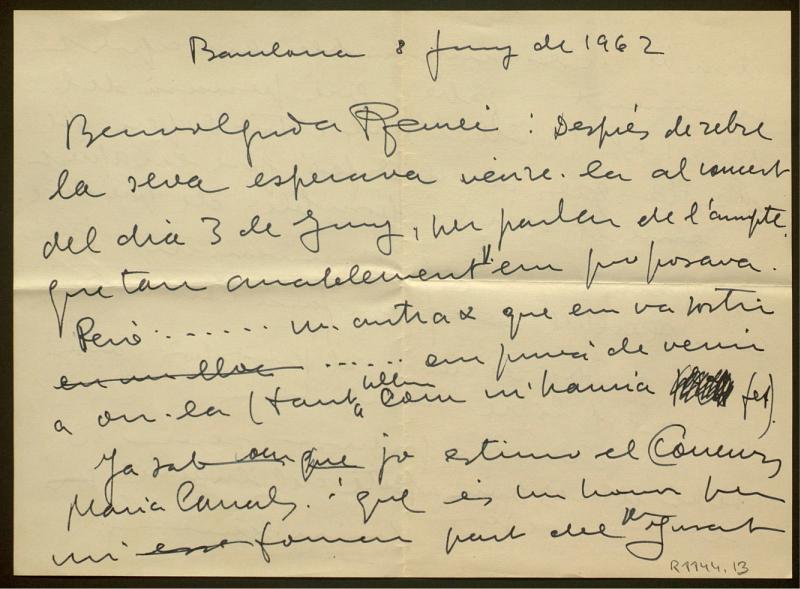 Barcelona 8 Juny de 1962
Benvolguda : Després de rebre
la seva esperava veure-la al concert
del dia 3 de Juny, per parlar de l'assumpte
que tan amablement em proposava.
Però ....... un antrax que em va sortir
en un lloc ...... em privà de venir
a oir-la (tant il·lusió com m'hauria fet).
Ja sab que jo estimo el Concurs
Maria Canals i que és un honor per
mi formar part del Jurat
R1144.13